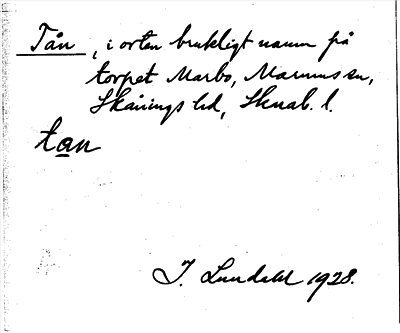 Tån, i orten brukligt namn på
torpet Marbo, Marums sn,
Skånings hd, Skarab. l.
tan
I. Lundahl 1928.